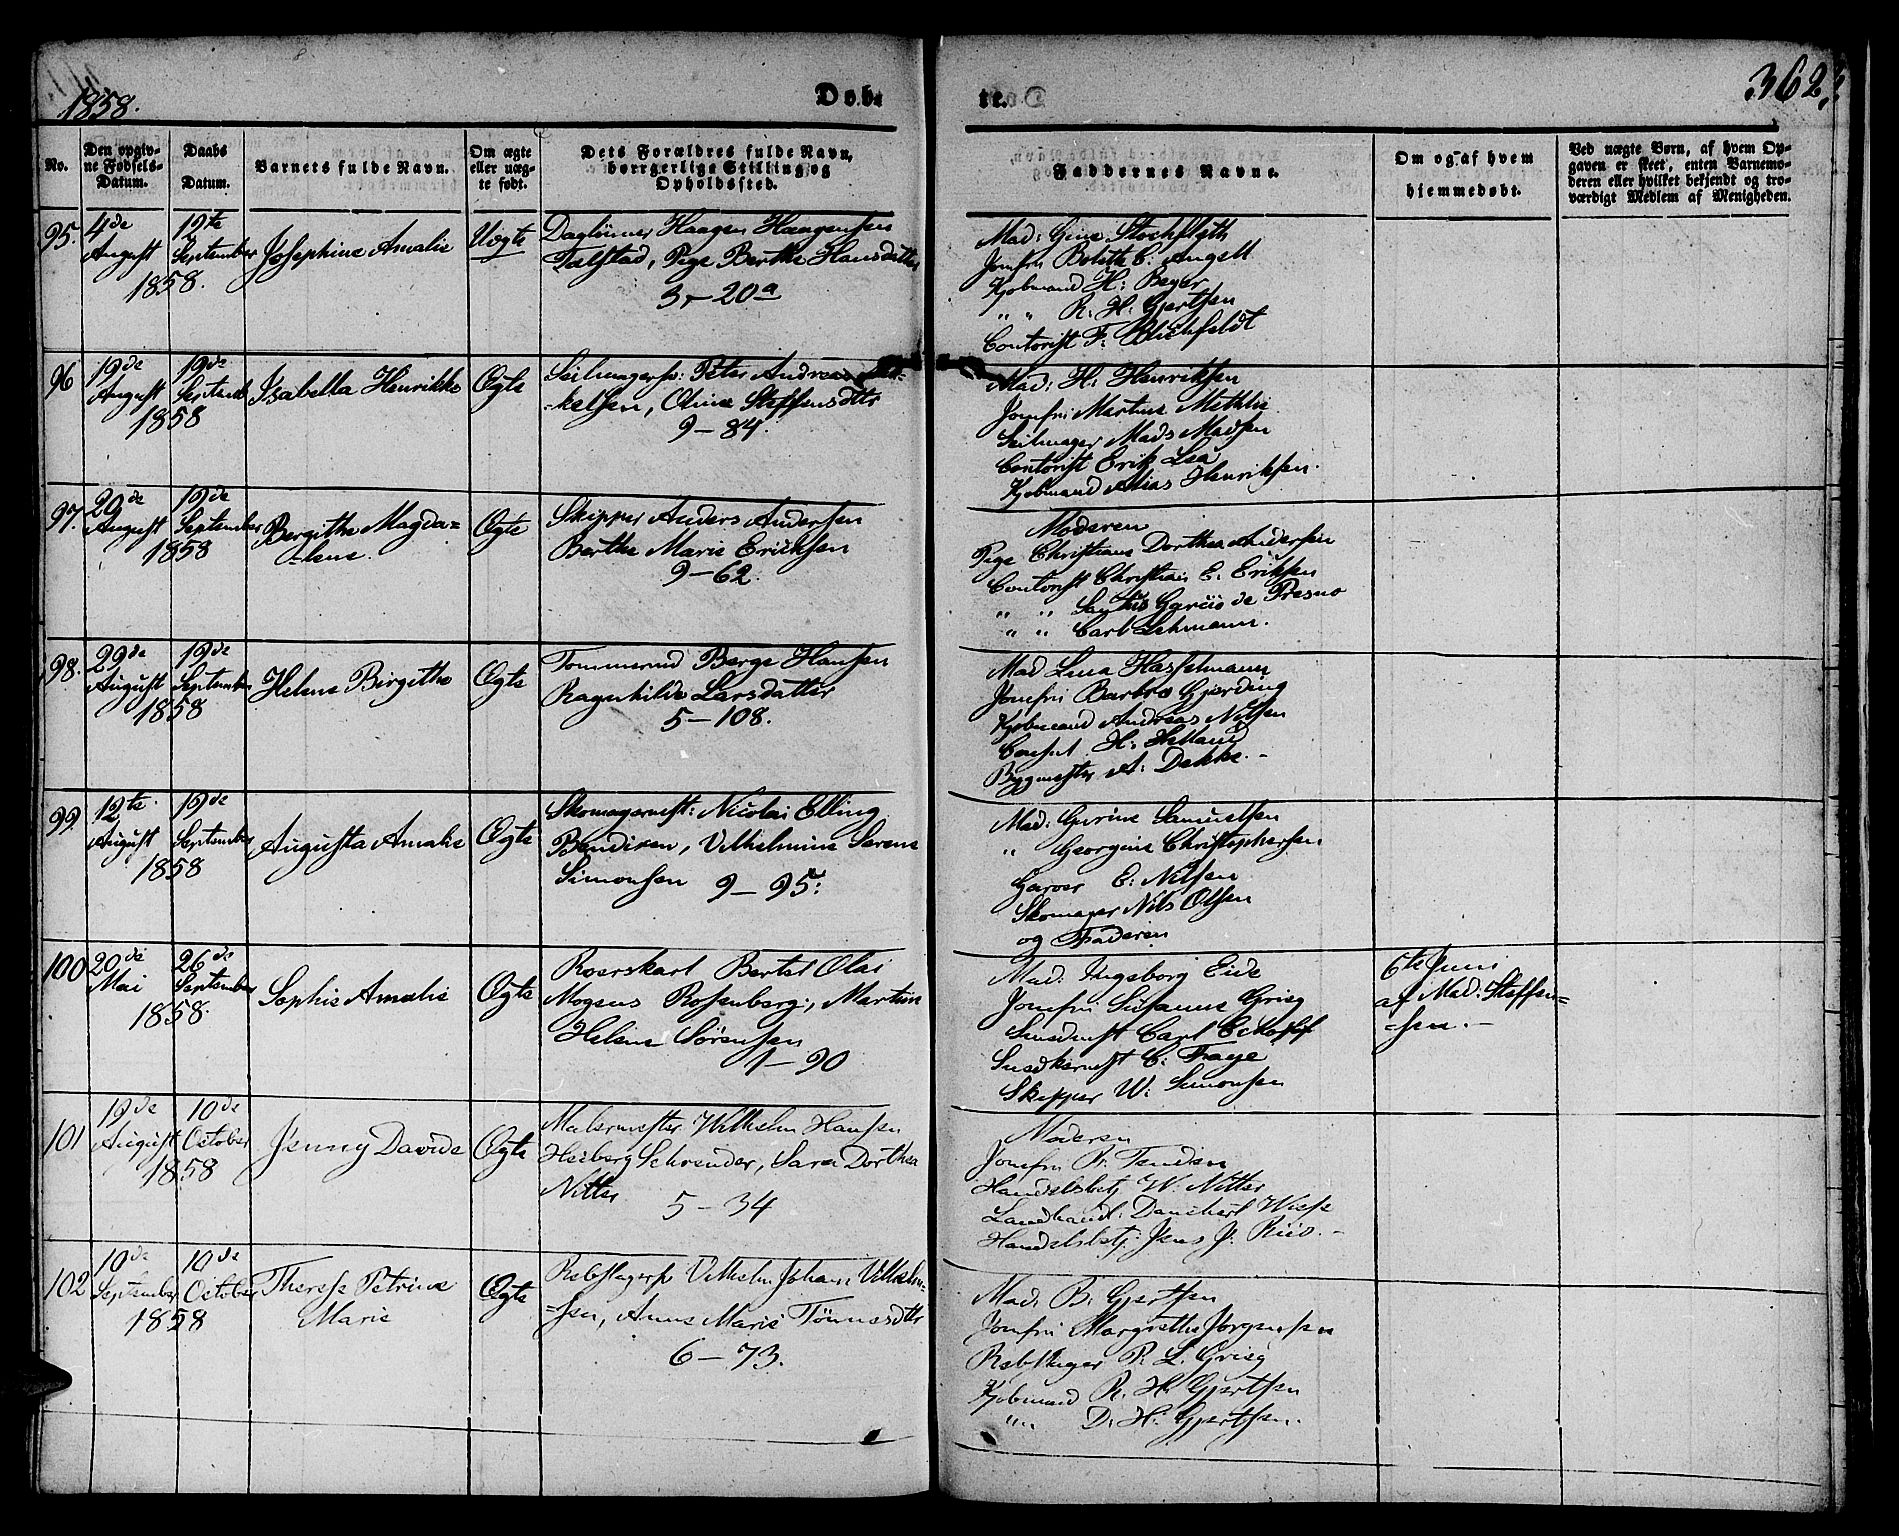 1858.
Døb-
te.
362.
No.
Den opgiv-
ne Fødsels-
Datum.
Daabs
Datum.
Barnets fulde Navn.
Om ægte
eller uæg-
te født.
Dets Forældres fulde Navn,
borgerlige Stilling og
Opholdssted.
Faddernes Navne.
Om og af hvem
hjemmedøbt.
Ved uægte Børn, af hvem Op-
gaven er skeet, enten Barnemo-
deren eller hvilket bekjendt og tro-
værdigt Medlem af Menigheden.
95.
4de
August
19te
September
1858.
Josephine Amalie
Uægte
Daglønner Haagen Haagensen
Talstad, Pige Berthe Hansdatter
3-20a
Mad: Gine Stockfleth
Jomfru Bolette C. Angell
Kjøbmand H: Beyer
" " R. H. Gjertsen
Contorist F: Blichfeldt
96
19de
August
19de
Septemb
1858
Isabella Henrikke
Ægte
Seilmagersv: Peter Andreas
-kelsen, Oline Steffensdttr
9-84.
Mad: H: Henriksen
Jomfru Martine Mathie
Seilmager Mads Madsen
Contorist Erik Lea
Kjøbmand Elias Henriksen.
97.
29de
August
19de
September
1858
Bergithe Magda=
=lene.
Ægte
Skipper Anders Andersen
Berthe Marie Ericksen
9-62.
Moderen
Pige Christiane Dorthea Andersen
Contorist Christian E. Eriksen
" " Santus Garcio de Presno
" " Carl Lehmann.
98.
29de
August
19de
September
1858
Helene Birgithe
Ægte
Tømmermd Berge Hansen
Ragnhilde Larsdatter
5-108.
Mad Lina Hasselmann
Jomfru Barbro Gjerding
Kjøbmand Andreas Nilsen
Consul H: Helland
Bygmester A: Dekke.-
99.
12te
August
19de
September
1858
Augusta Amalie
Ægte
Skomagermest: Nicolai Elling
Bendixen, Vilhelmine Sørene
Simonsen 9-95:
Mad: Gurine Samuelsen
" Georgine Christophersen
Garver E: Nilsen
Skomager Nils Olsen
og Faderen
100
20de
Mai
26de
September
1858.
Sophie Amalie
Ægte
Roerskarl Bertel Olai
Mogens Rosenberg, Martine
Helene Sørensen
1-90
Mad: Ingeborg Eide
Jomfru Susanne Grieg
Carl Eckhoff
Snedkermst C. Faye
Skipper W: Simonsen
6te Juni
af Mad: Steffen=
=sen.-
101
19de
August
10de
October
1858
Jenny Davide
Ægte
Malermester Wilhelm Hansen
Heiberg Schrøder, Sara Dorthea
Nitter
5-34
Moderen
Jomfru
Handelsbetj W. Nitter
Landhandl: Danchert Wiese
Handelsbetj: Jens J. Riis.-
102
10de
September
10de
October
1858
Therese Petrine
Marie
Ægte
Rebslagersv Vilhelm Johan Vilhelm-
=sen, Anne Marie Tønnesdttr
6-73.
Mad: B: Gjertsen
Jomfru Margrethe Jørgensen
Rebslager P. L. Grieg
Kjøbmand R. H. Gjertsen
" " D. H. Gjertsen.